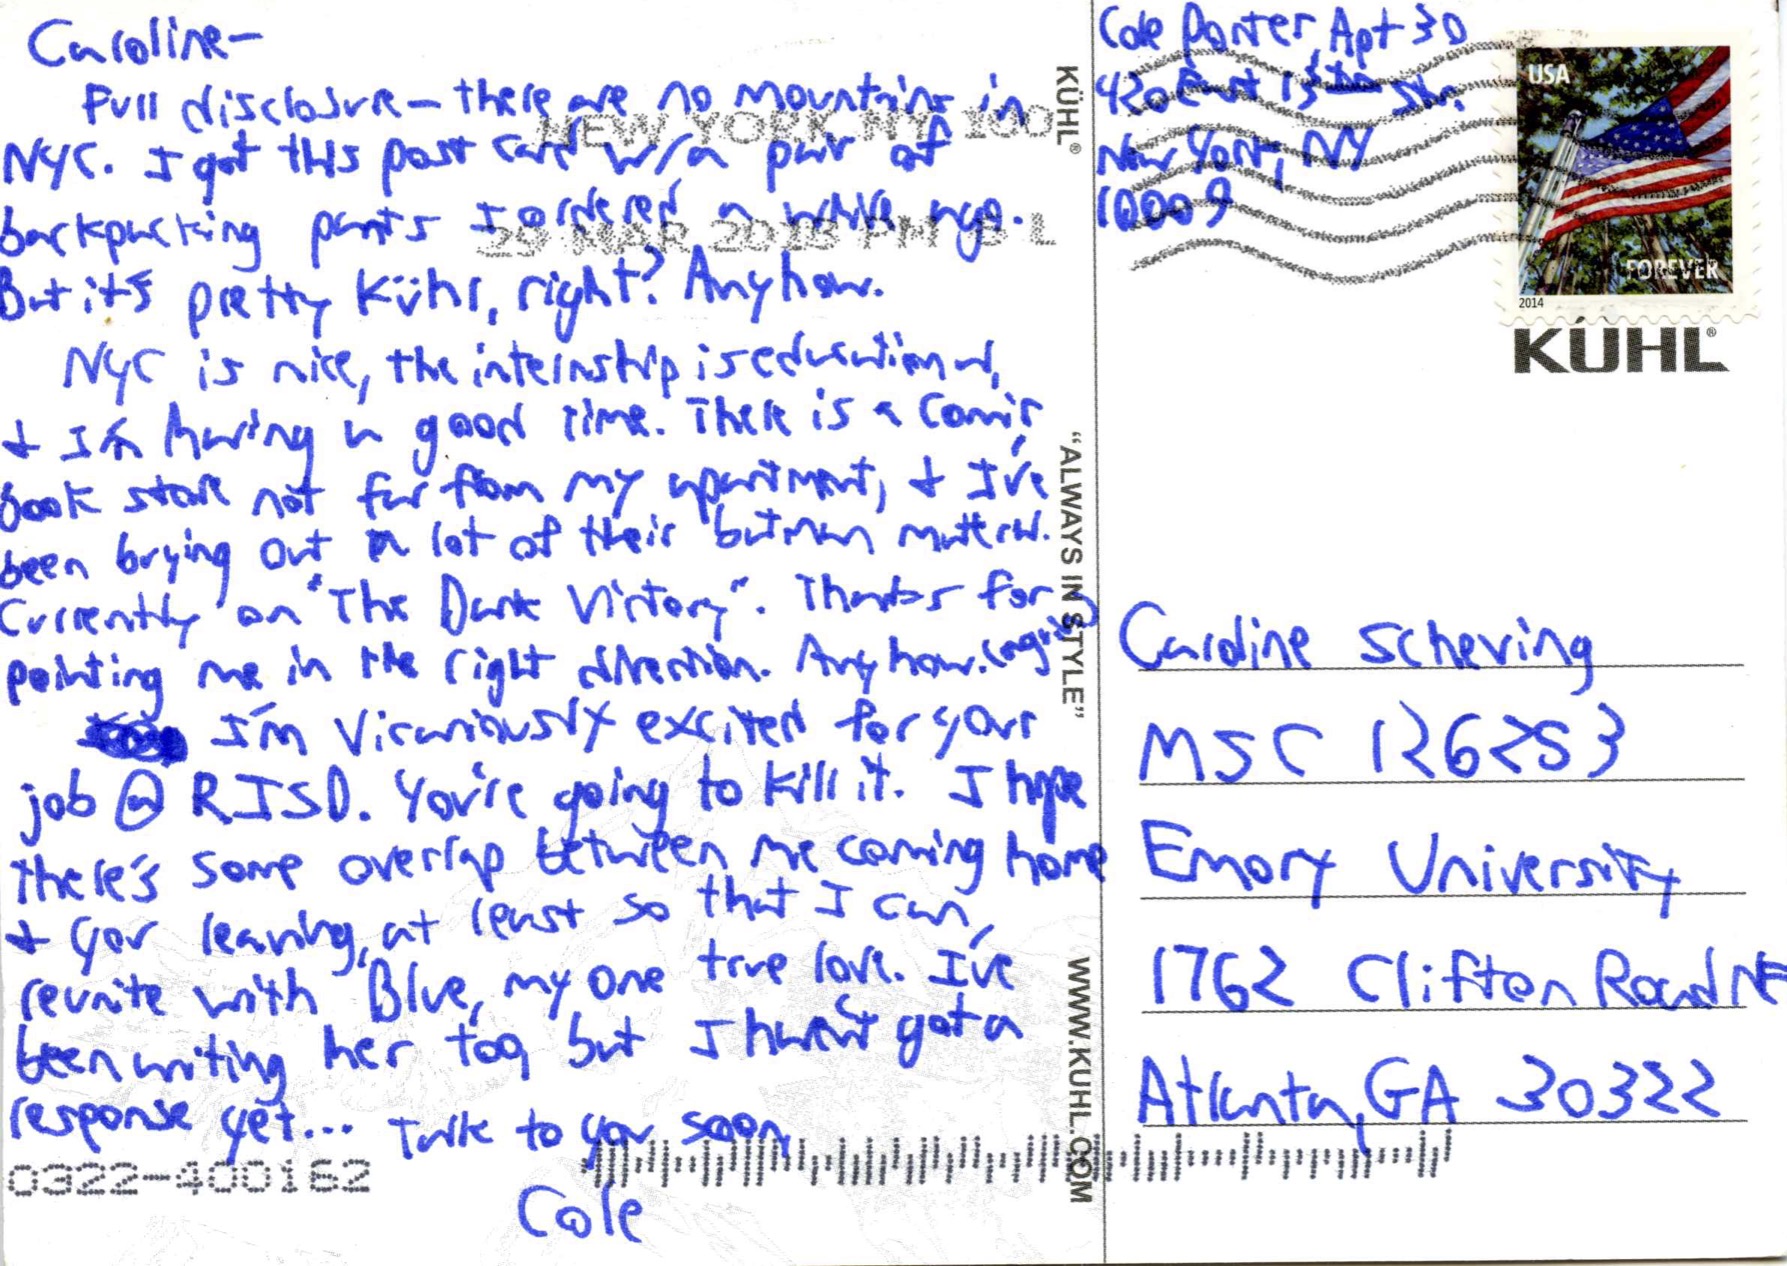 Caroline-
Full disclosure - there are no mountains in
NYC. I got this post card w/a pair of
backpacking pants I ordered a while ago.
But it's pretty Kühl, right? Anyhow.
NYC is nice, the internship is educational,
& I'm having a good time. There is a comic
book store not far from my apartment, & I've
been buying out a lot of their batman material.
Currently on "The Dark Victory". Thanks for
pointing me in the right direction. Anyhow. (again)
I'm vicariously excited for your
job @ RISD. You're going to kill it. I hope
there's some overlap between me coming home
& you leaving, at least so that I can
reunite with Blue, my one true love. I've
been writing her too, but I haven't got a
response yet... Talk to you soon,
Cole
0322-400162
NEW YORK NY 100
29 MAR PM L
KÜHL®
"ALWAYS IN STYLE"
WWW.KUHL.COM
Cole Porter, Apt 3D
420 East 13th Str.
New York, NY
10009
USA
FOREVER
2014
KÜHL®
Caroline Scheving
MSC 126253
Emory University
1762 Clifton Road NE
Atlanta, GA 30322